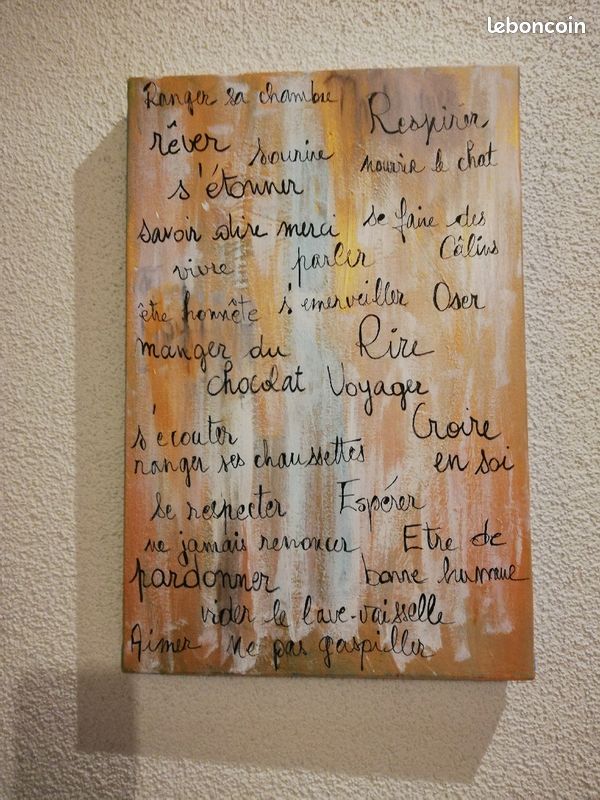 leboncoin
Ranger sa chambre
Respirer
rêver
sourire
nourrir le chat
s'étonner
savoir dire merci
se faire des
Câlins
vivre
parler
être honnête
s'emerveiller
Oser
manger du
chocolat
Rire
Voyager
s'écouter
Croire
en soi
ranger ses chaussettes
se respecter
Espérer
ne jamais renoncer
Etre de
bonne humeur
pardonner
vider le lave-vaisselle
Aimer
Ne pas gaspiller